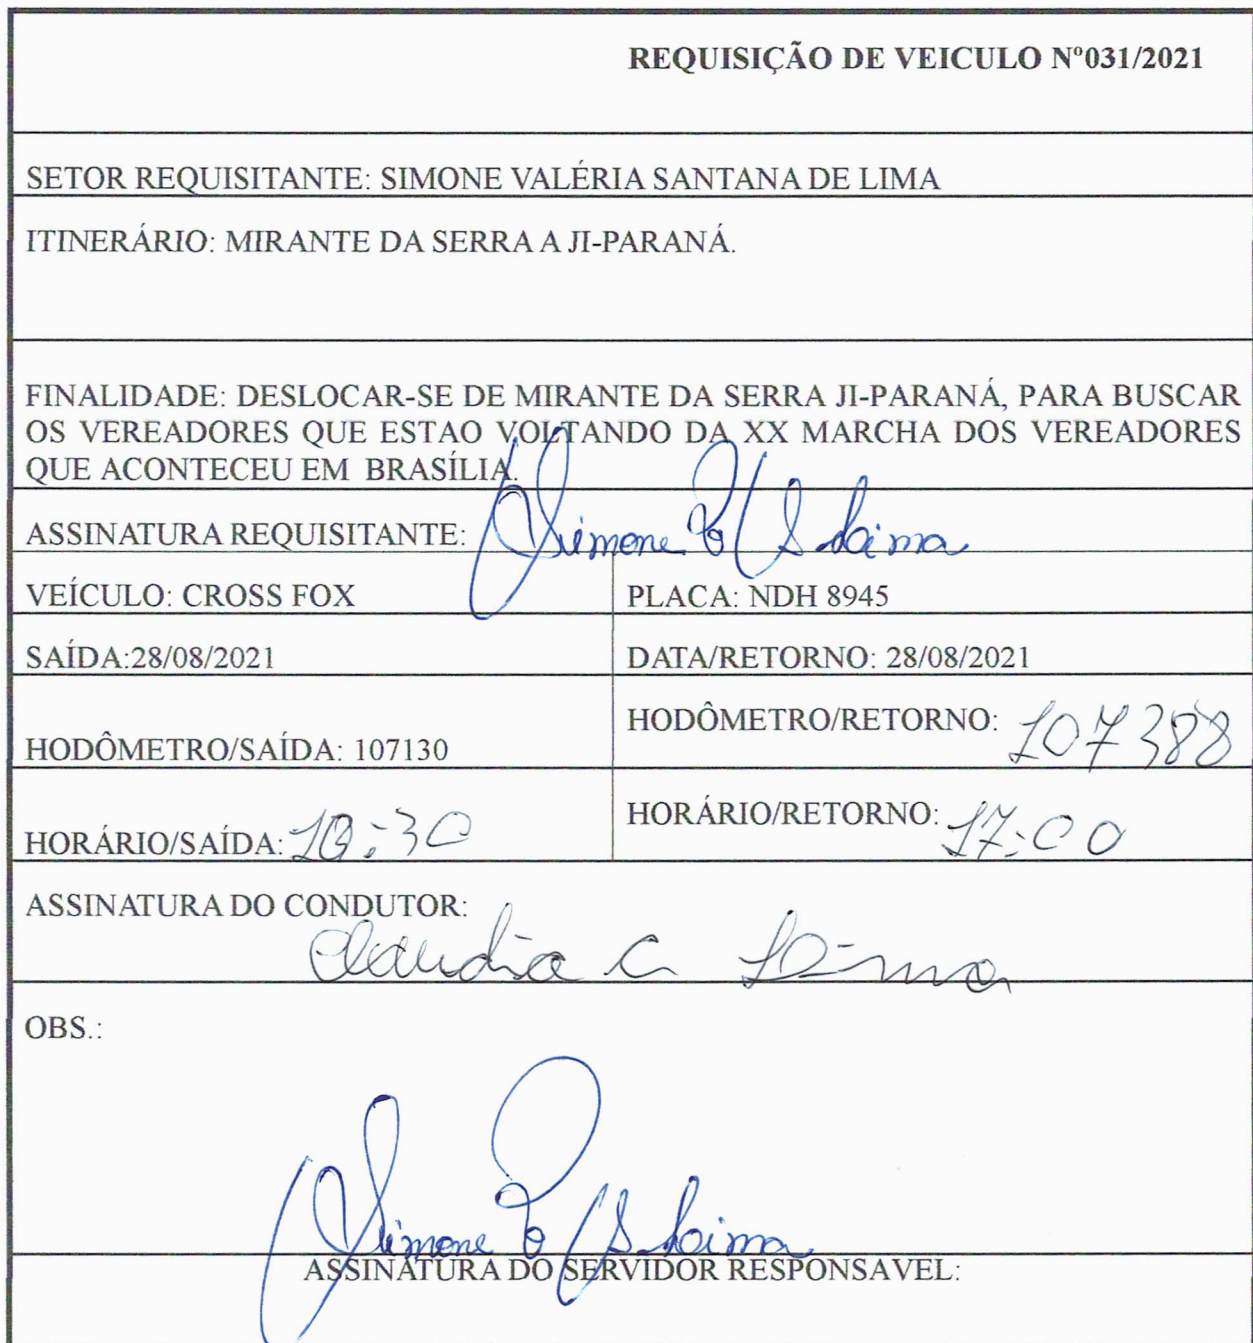 REQUISIÇÃO DE VEICULO Nº031/2021
SETOR REQUISITANTE: SIMONE VALÉRIA SANTANA DE LIMA
ITINERÁRIO: MIRANTE DA SERRA A JI-PARANÁ.
FINALIDADE: DESLOCAR-SE DE MIRANTE DA SERRA JI-PARANÁ, PARA BUSCAR
OS VEREADORES QUE ESTAO VOLTANDO DA XX MARCHA DOS VEREADORES
QUE ACONTECEU EM BRASÍLIA.
ASSINATURA REQUISITANTE: Simone V S Lima
VEÍCULO: CROSS FOX
PLACA: NDH 8945
SAÍDA:28/08/2021
DATA/RETORNO: 28/08/2021
HODÔMETRO/SAÍDA: 107130
HODÔMETRO/RETORNO: 107388
HORÁRIO/SAÍDA:
HORÁRIO/RETORNO: 17:00
ASSINATURA DO CONDUTOR:
Claudia C Lima
OBS.:
Simone V S Lima
ASSINATURA DO SERVIDOR RESPONSAVEL: